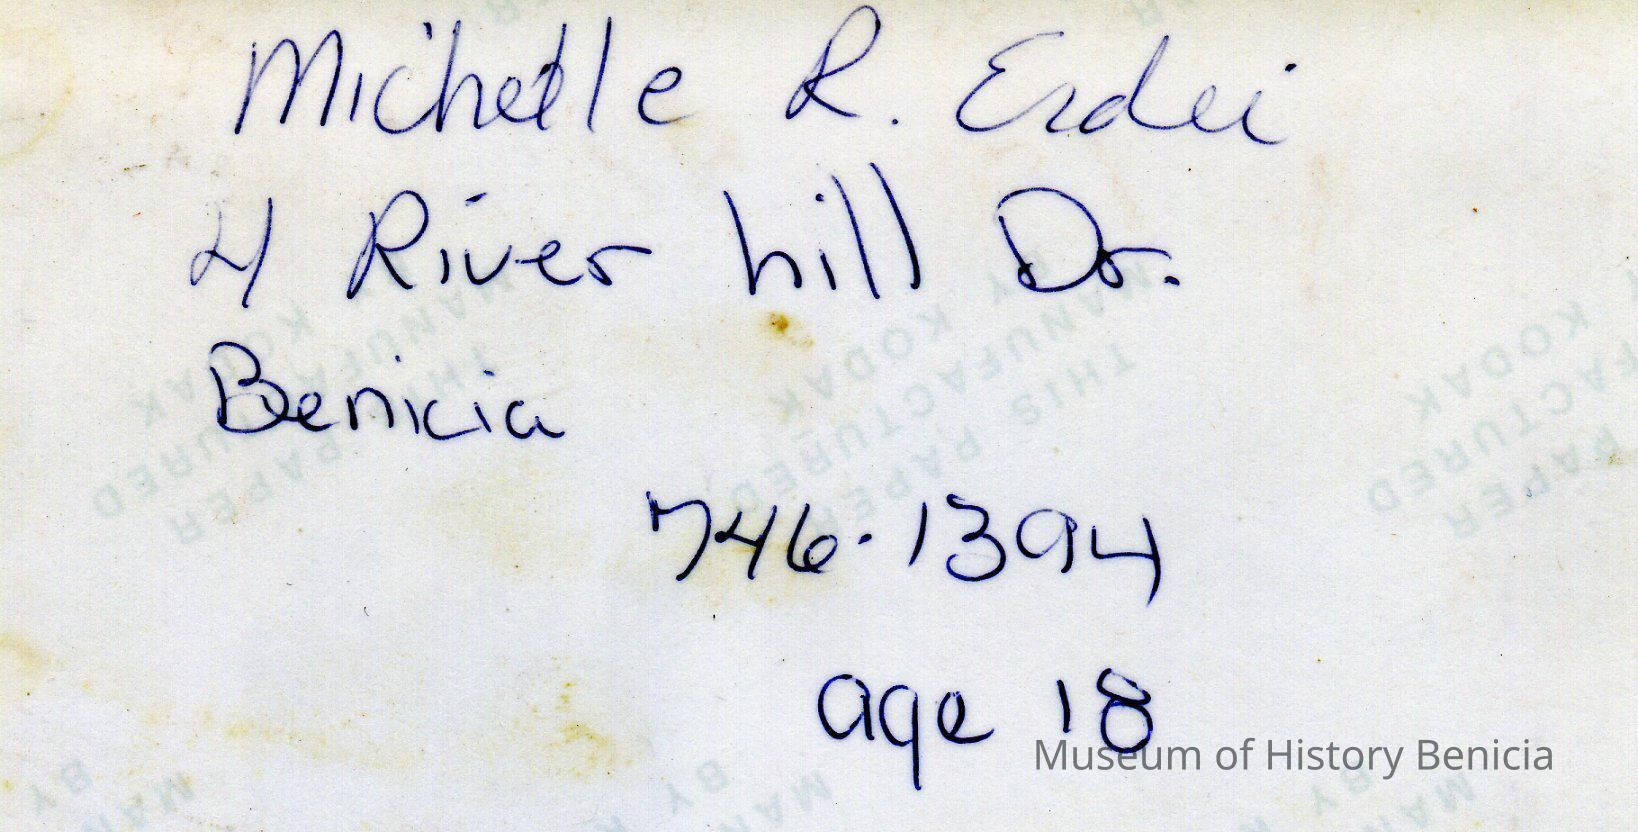 Michelle R. Erdei
4 River hill Dr.
Benicia
746-1394
age 18
Museum of History Benicia
THIS PAPER
MANUFACTURED
BY KODAK